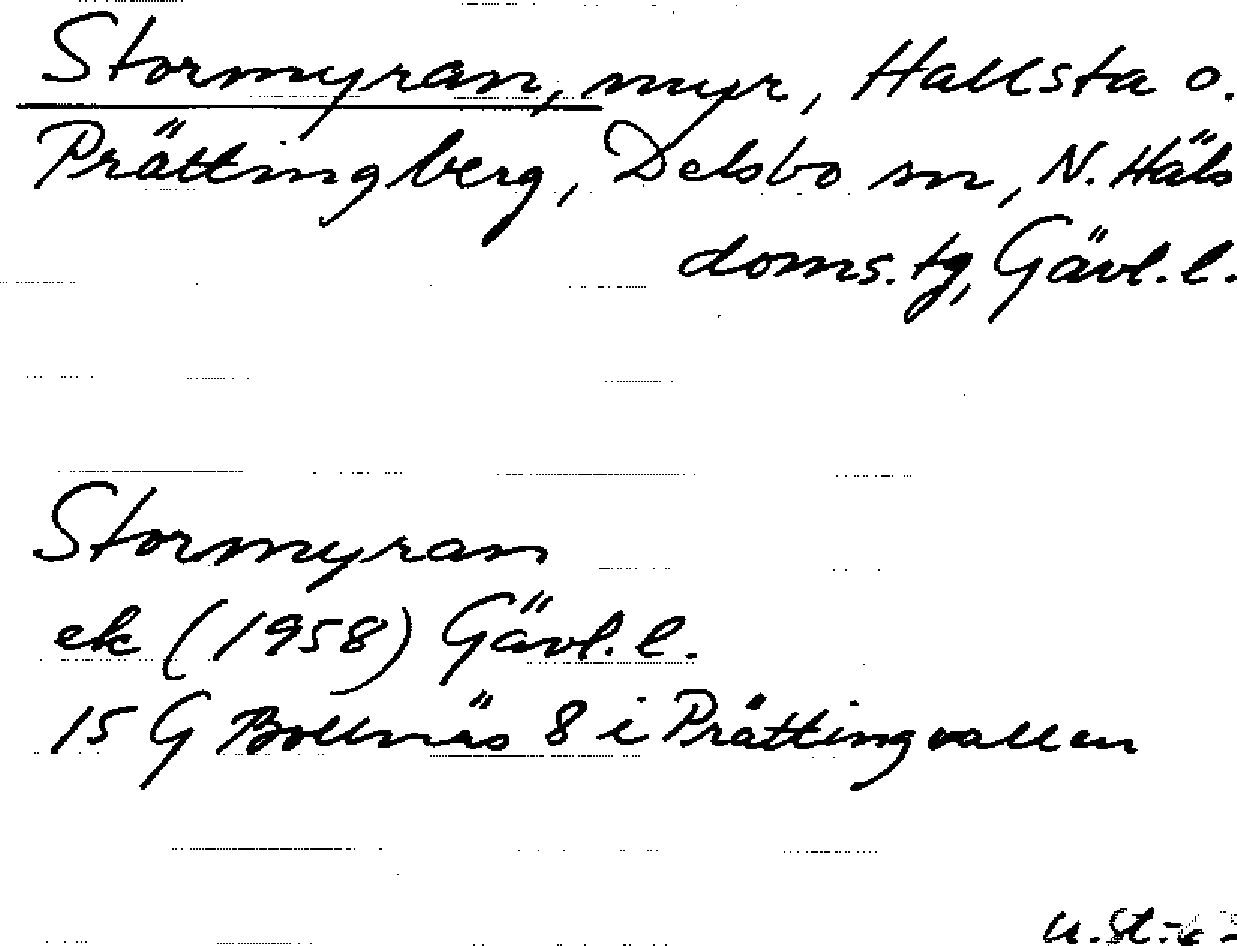 Stormyran, myr, Hallsta o.
Prättingberg, Delsbo sn, N. Häls
doms. tg, Gävl. l.
Stormyran
ek (1958) Gävl. l.
15 G Bollnäs 8 i Prättingvallen